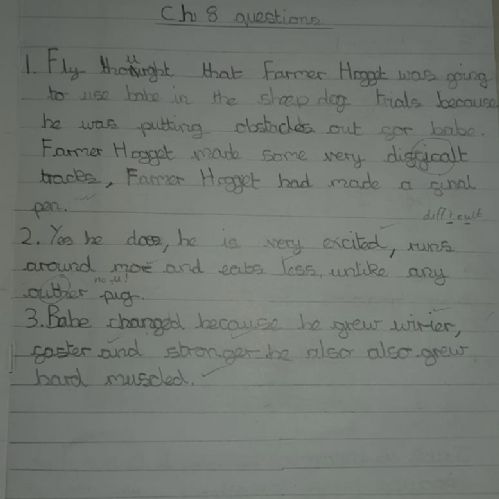 Ch 8 questions
1. Fly thought that Farmer Hogget was going
to use babe in the sheep dog trials because
he was putting obstacles out for babe.
Farmer Hogget made some very difficalt
tracks, Farmer Hogget had made a final
pen.
difficult
2. Yes he does, he is very excited, runs
around more and eats less, unlike any
no u!
outher pig.
3. Babe changed because he grew wirier,
faster and stronger he also also grew
hard muscled.